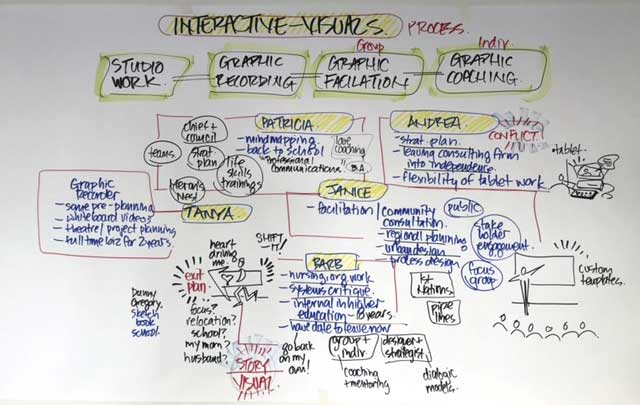 INTERACTIVE-VISUALS. PROCESS.
Group
Indiv.
STUDIO
WORK
GRAPHIC
RECORDING
GRAPHIC
FACILATION
GRAPHIC
COACHING.
PATRICIA
- mindmapping.
- back to school
"professional
communications."
love
coaching
B.A
ANDREA
CONFLICT.
- strat-plan.
- leaving consulting firm
into independence.
- flexibility of tablet work
tablet
chief +
council
teams
strat
plan
life
skills
trainings
Heron's
Nest
TANYA
Graphic
Recorder
- some pre-planning
- whiteboard videos
- theatre/project planning
- full time biz for 2 years.
JANICE
- facilitation/community
consultation.
- regional planning
- urban design
- process design
public
stake
holder
engagement
focus
group
1st
Nations
pipe
lines
custom
templates.
BARB
- nursing, org work
- systems critique.
- internal in higher
education - 18 years.
- have date to leave now
go back
on my
own!
group +
indiv
coaching
+ mentoring
designer +
strategist.
dialogic
models.
heart
driving
me.
SHIFT
-IT!
exit
plan.
focus?
relocation?
school?
my mom?
husband?
STORY
VISUAL
Danny
Gregory.
sketch
book
school.